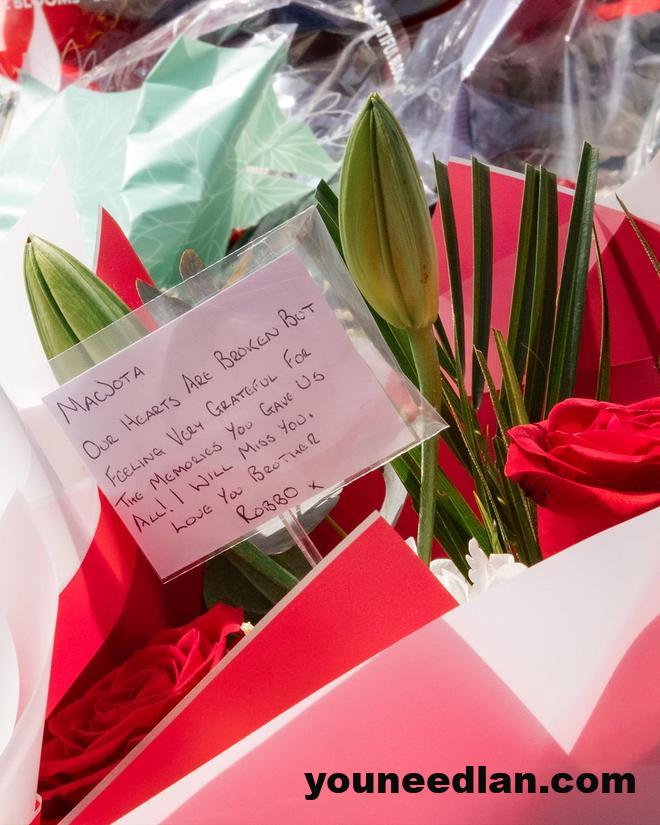 BLOOMS
MACJOTA
OUR HEARTS ARE BROKEN BUT
FEELING VERY GRATEFUL FOR
THE MEMORIES YOU GAVE US
ALL! I WILL MISS YOU.
LOVE YOU BROTHER
ROBBO X
youneedlan.com